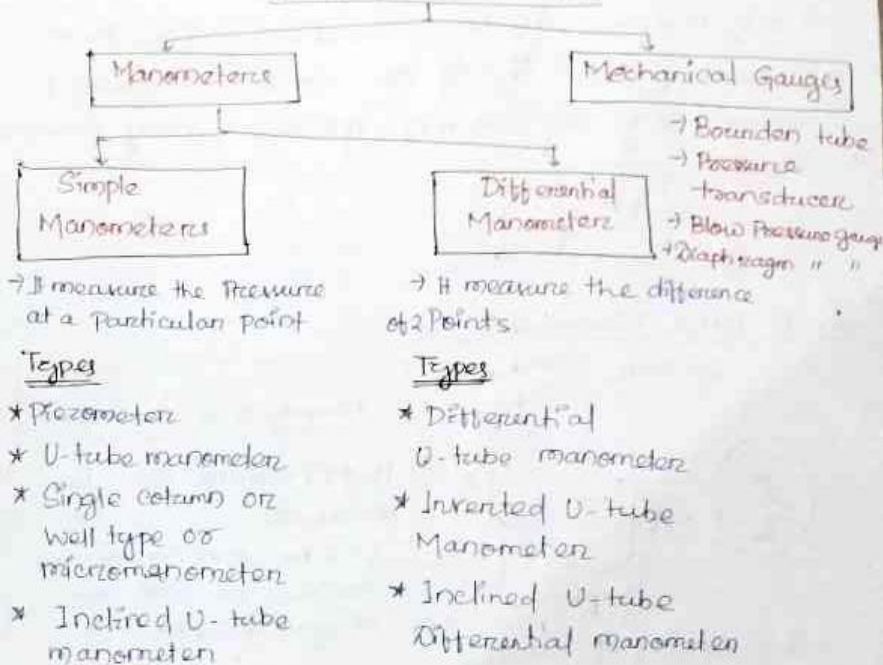 Manometers
Mechanical Gauges
→ Bourdon tube
→ Pressure
transducer
→ Blow Pressure gauge
→ Diaphragm " "
Simple
Manometers
Differential
Manometer
→ It measure the Pressure
at a Particular point
→ It measure the difference
of 2 Points
Types
* Piezometer
* U-tube manometer
* Single column or
well type or
micromanometer
* Inclined U-tube
manometer
Types
* Differential
U-tube manometer
* Inverted U-tube
Manometer
* Inclined U-tube
Differential manometer